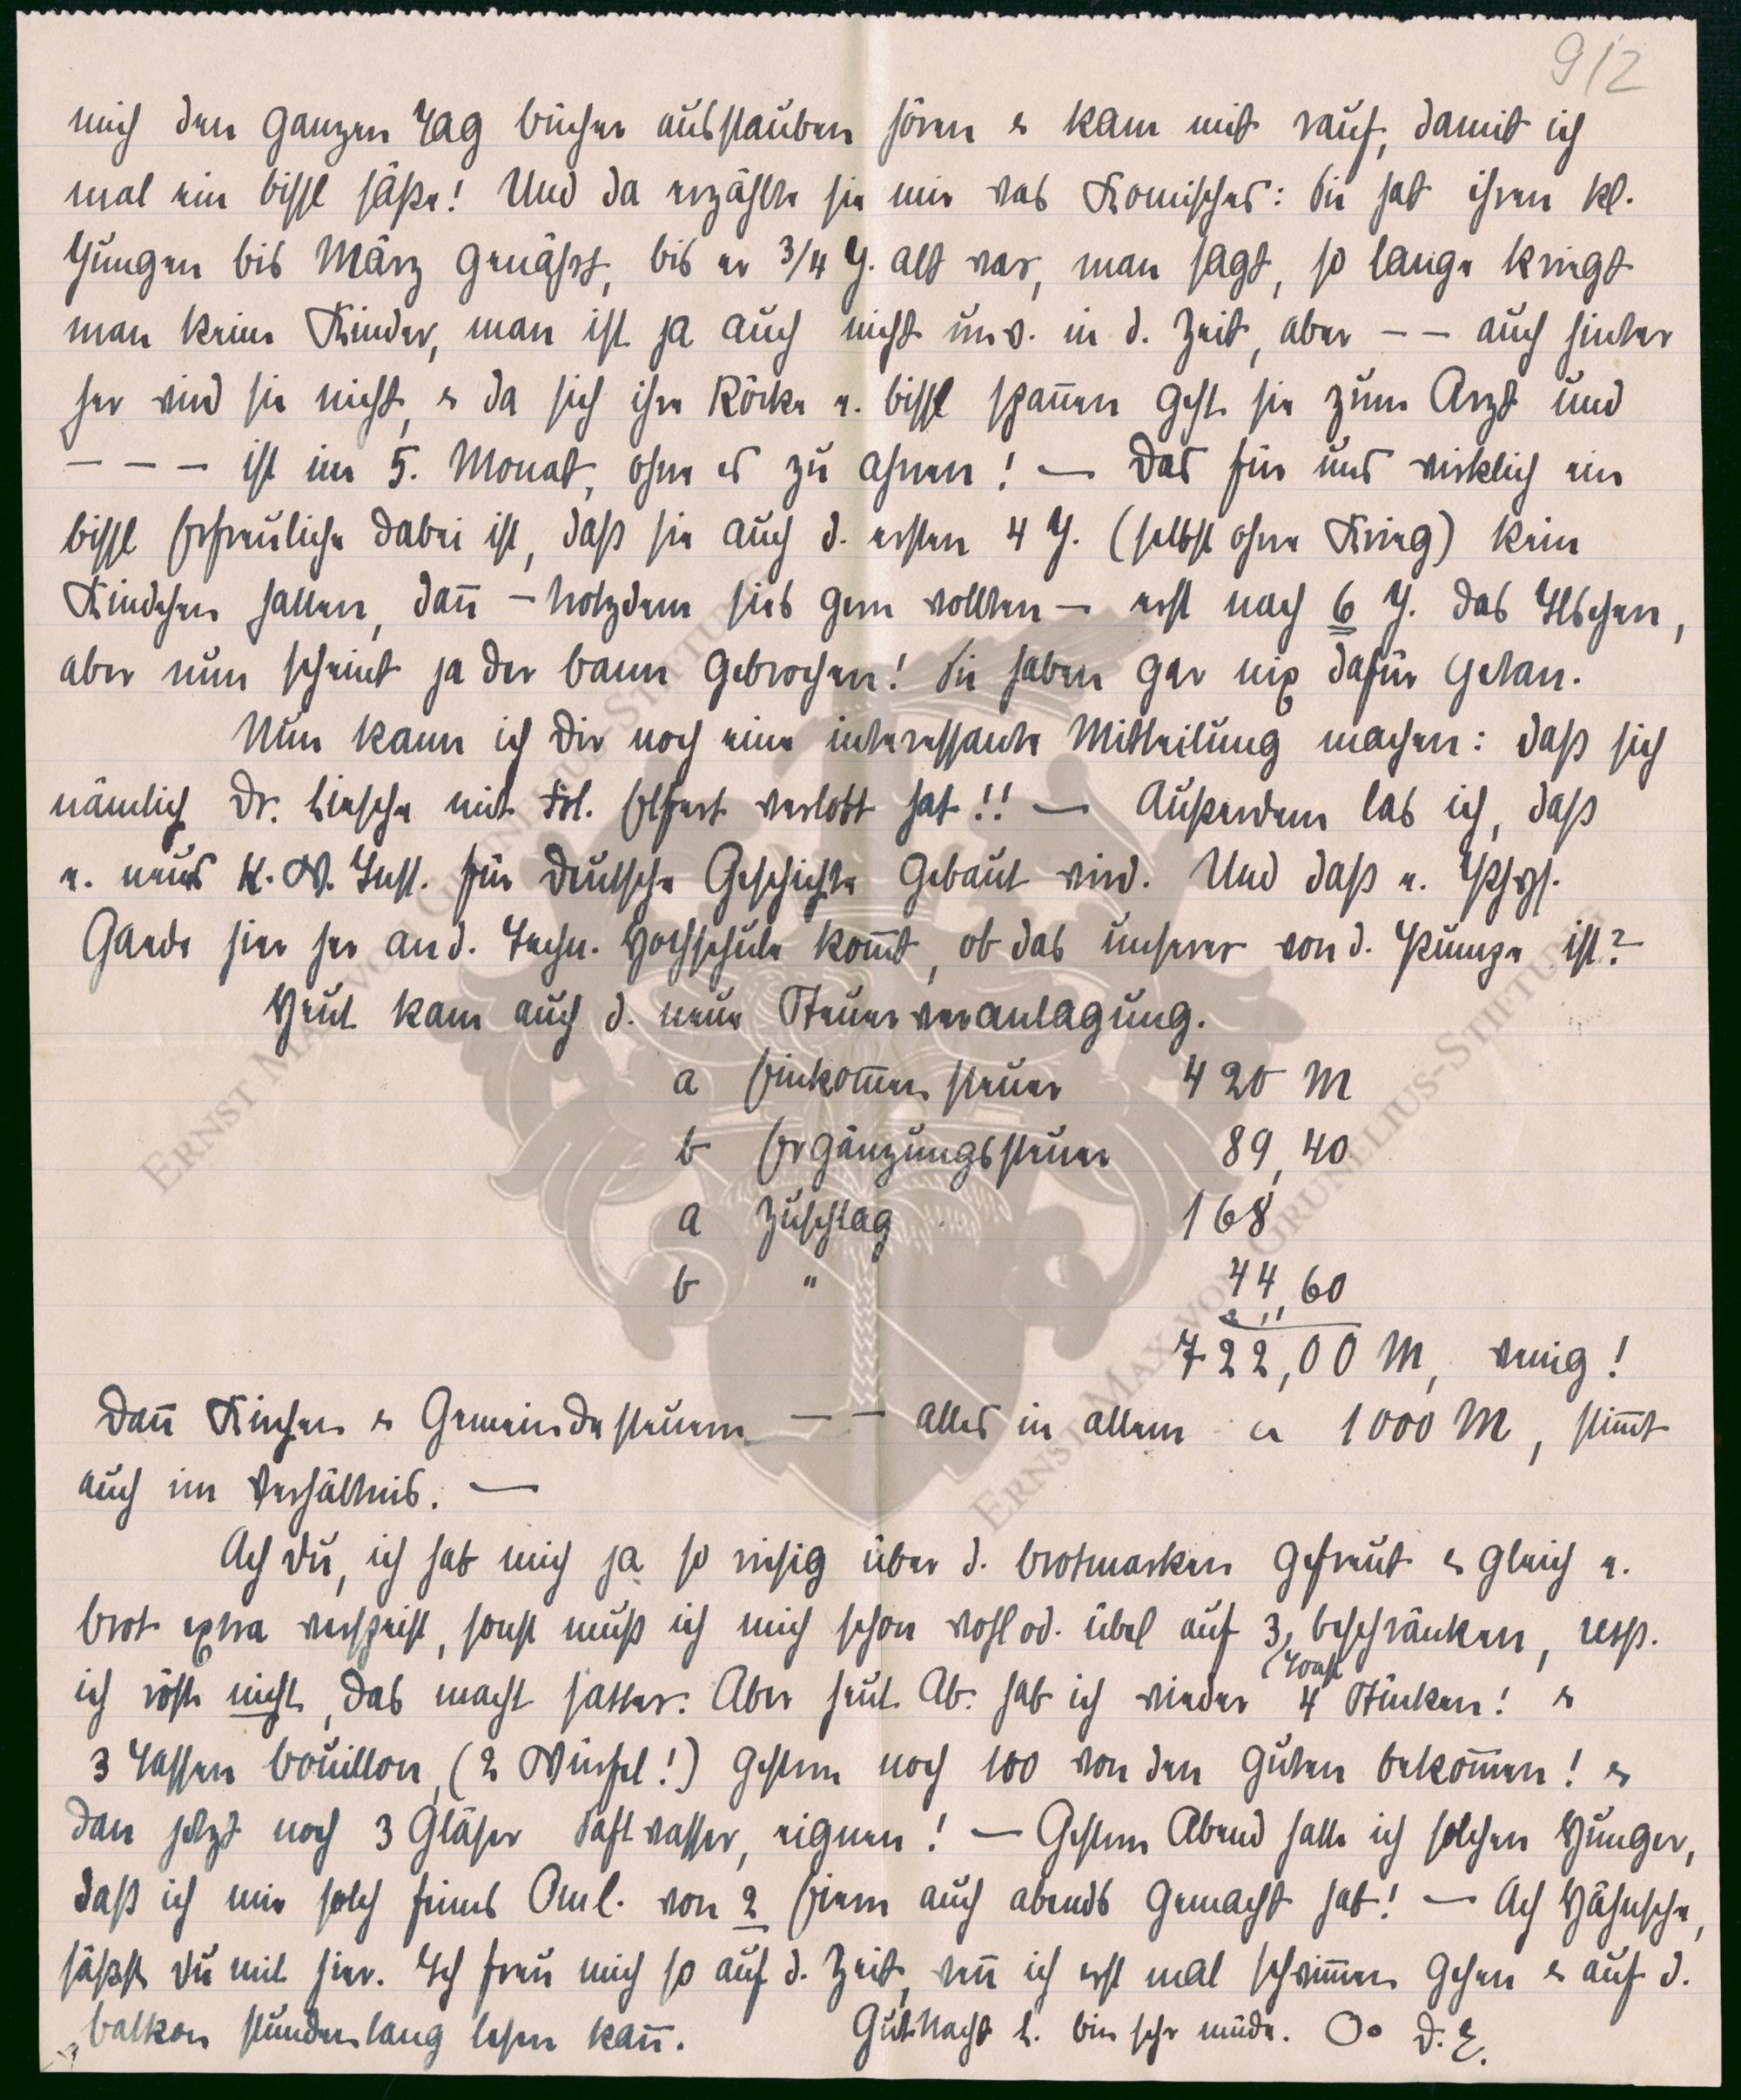 9/2
mich den ganzen Tag Bücher ausstauben hören & kam mit rauf, damit ich
mal ein bissl säße! Und da erzählte sie mir was Komisches: Sie hat ihren kl.
Jungen bis März genährt, bis er 3/4 J. alt war, man sagt, so lange kriegt
man keine Kinder, man ist ja auch nicht unw. in d. Zeit, aber – – auch hinter
her wird sie nicht, & da sich ihre Röcke e. bissl spannen geht sie zum Arzt und
– – – ist im 5. Monat, ohne es zu ahnen! — Das für uns wirklich ein
bissl Erfreuliche dabei ist, daß sie auch d. ersten 4 J. (selbst ohne Krieg) kein
Kindchen hatten, dann – trotzdem sies gern wollten – erst nach 6 J. das Ilschen,
aber nun scheint ja der Bann gebrochen! Sie haben gar nix dafür getan.
Nun kann ich Dir noch eine interessante Mitteilung machen: daß sich
nämlich Dr. Liesche mit Frl. Elfert verlobt hat!! — Außerdem las ich, daß
e. neues K.W. Inst. für Deutsche Geschichte gebaut wird. Und daß e. Phys.
Gaede hier her an d. Techn. Hochschule kommt, ob das unserer von d. Pumpe ist?
Heut kam auch d. neue Steuerveranlagung.
a Einkommensteuer 420 M
b Ergänzungssteuer 89,40
a Zuschlag 168
b " 44,60
722,00 M, wenig!
Dann Kirchen & Gemeindesteuern – – alles in allem ca 1000 M, stimmt
auch im Verhältnis. —
Ach Du, ich hab mich ja so riesig über d. Brotmarken gefreut & gleich e.
Brot extra verspeist, sonst muß ich mich schon wohl od. übel auf 3 beschränken, resp.
(Toast
ich röste nicht, das macht satter. Aber heut Ab. hab ich wieder 4 Stücken! &
3 Tassen Bouillon, (2 Würfel!) gestern noch 100 von den guten bekommen! &
dan jetzt noch 3 Gläser Saftwasser, eignen! — Gestern Abend hatte ich solchen Hunger,
daß ich mir solch feines Oml. von 2 Eiern auch abends gemacht hab! — Ach Hähnsche,
säßst Du mit hier. Ich freu mich so auf d. Zeit, wenn ich erst mal schwimmen gehen & auf d.
Balkon stundenlang lesen kann. Gut Nacht L. bin sehr müde. Oo D. E.
ERNST MAX VON GRUNELIUS-STIFTUNG
ERNST MAX VON GRUNELIUS-STIFTUNG